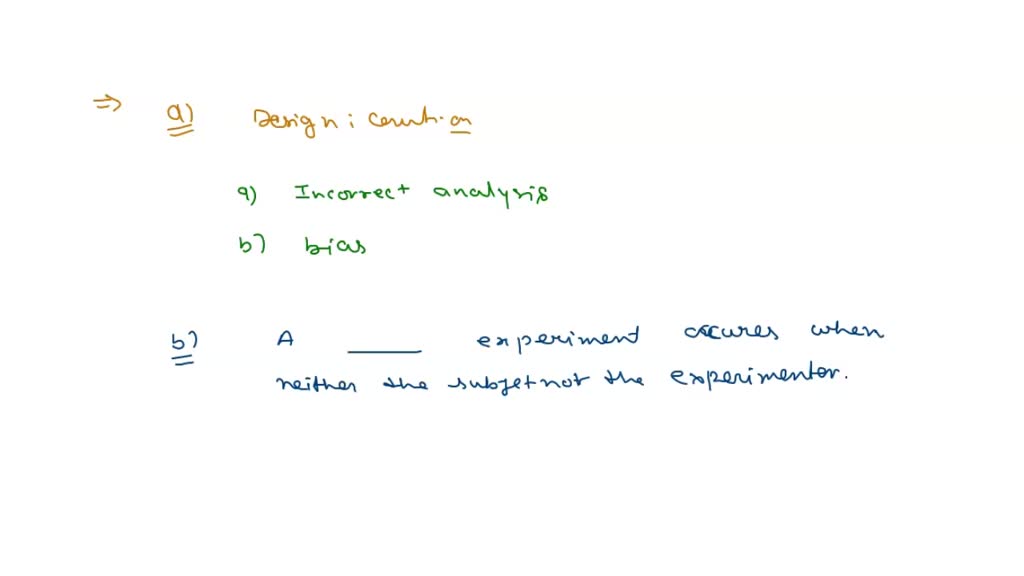 ⇒ a) Design : caution
a) Incorrect analysis
b) bias
b) A ____ experiment occures when
neither the subjet not the experimentor.